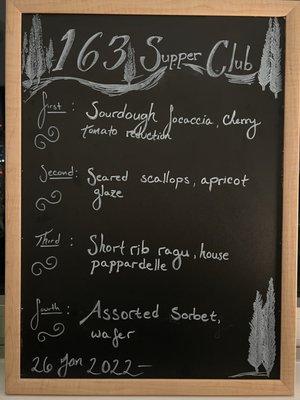 163 Supper Club
first: Sourdough focaccia, cherry
tomato reduction
Second: Seared scallops, apricot
glaze
Third: Short rib ragu, house
pappardelle
fourth: Assorted Sorbet,
wafer
26 Jan 2022-